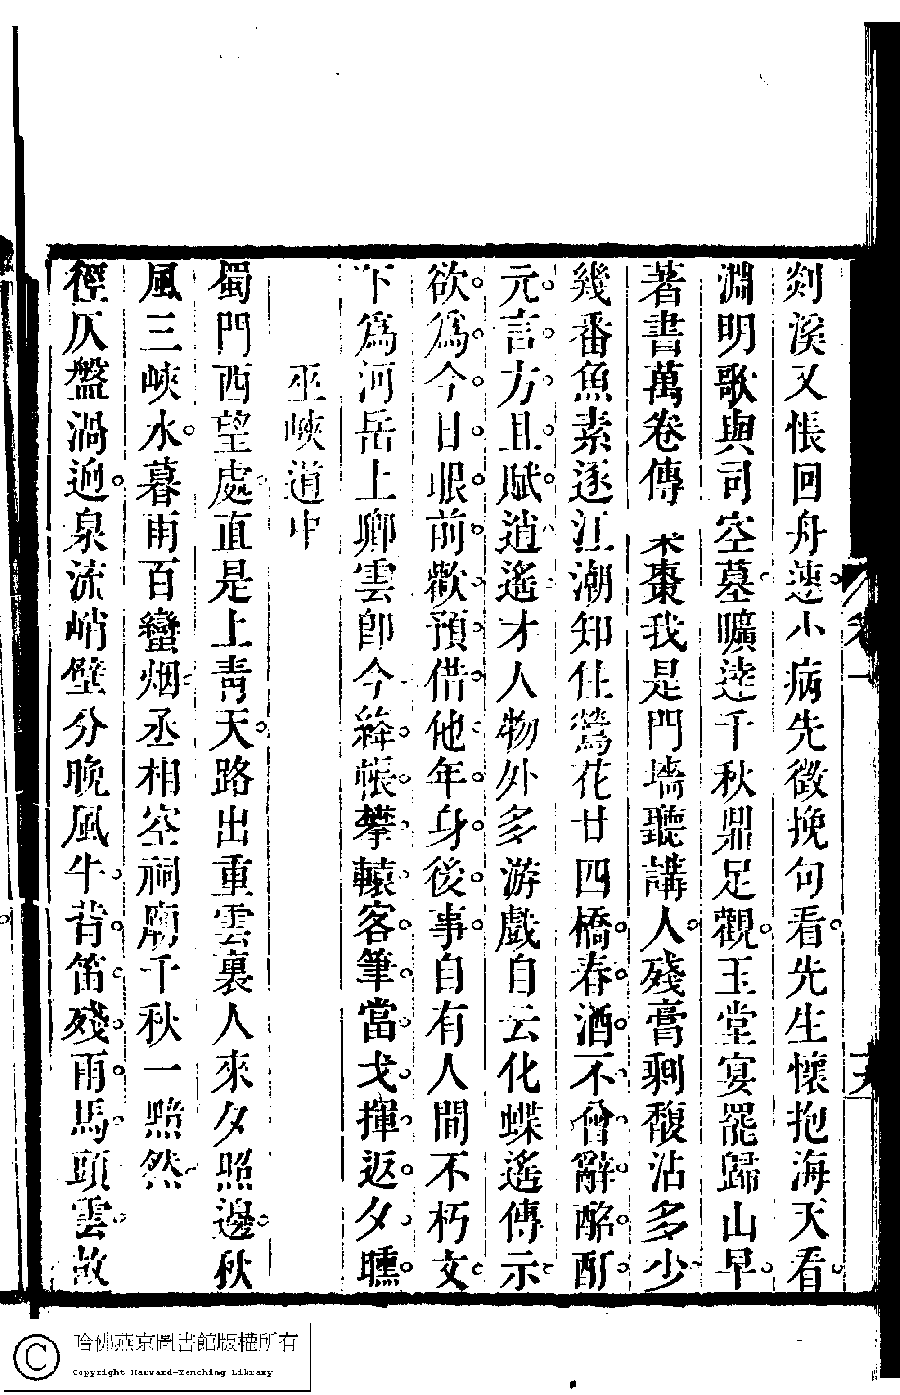 剡溪又悵回舟速小病先徵挽句看先生懷抱海天看
淵明歌與司空墓曠達千秋鼎足觀玉堂宴罷歸山早
著書萬卷傳未棗我是門墻聽講人殘膏剩馥沾多少
幾番魚素逐江潮知住鶯花廿四橋春酒不曾辭酩酊
元言方且賦逍遙才人物外多游戲自云化蝶遙傳示
欲爲今日眼前歡預借他年身後事自有人間不朽文
下爲河岳上卿雲卽今絳帳攀轅客筆當戈揮返夕曛
巫峽道中
蜀門西望處直是上靑天路出重雲裏人來夕照邊秋
風三峽水暮雨百蠻烟丞相空祠廟千秋一黯然
徑仄盤渦逈泉流峭壁分晚風牛背笛殘雨馬頭雲故
卷一
哈佛燕京圖書館版權所有
Copyright Harvard-Yenching Library